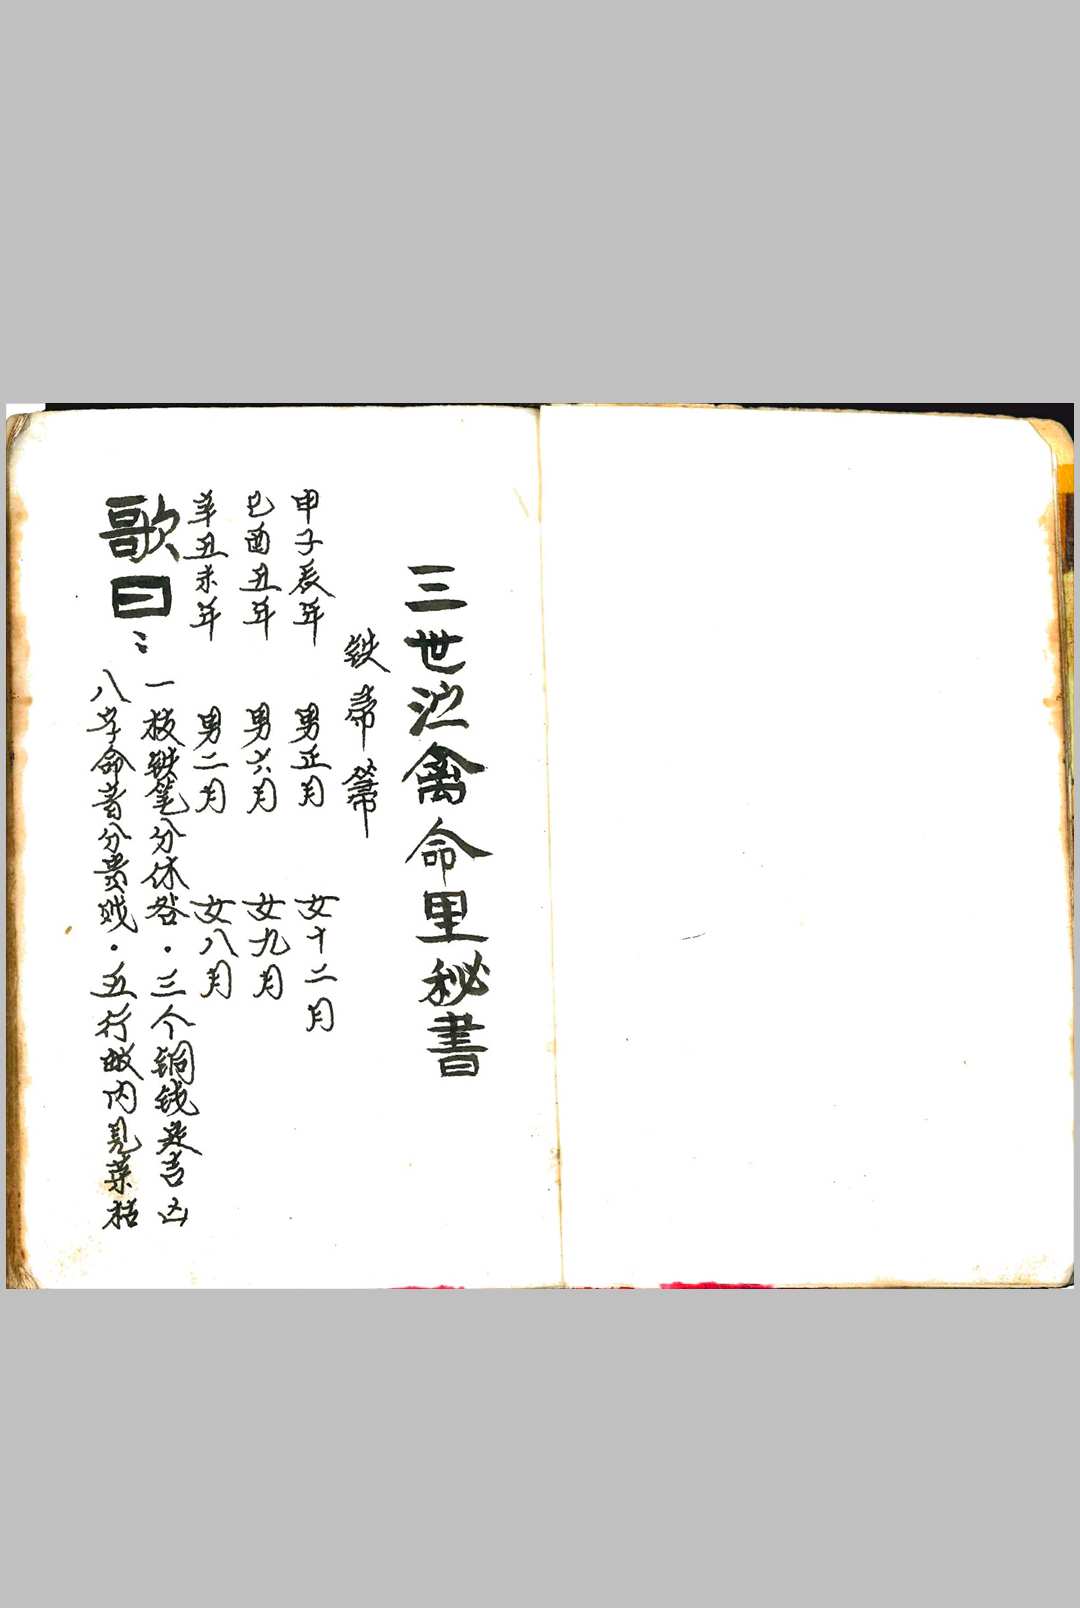 三世沁禽命里秘書
铁帚箒
申子辰年 男正月 女十二月
巳酉丑年 男六月 女九月
羊丑未年 男二月 女八月
歌曰:
一枝铁笔分休咎·三个铜钱定吉凶
八字命者分贵贱·五行内見荣枯